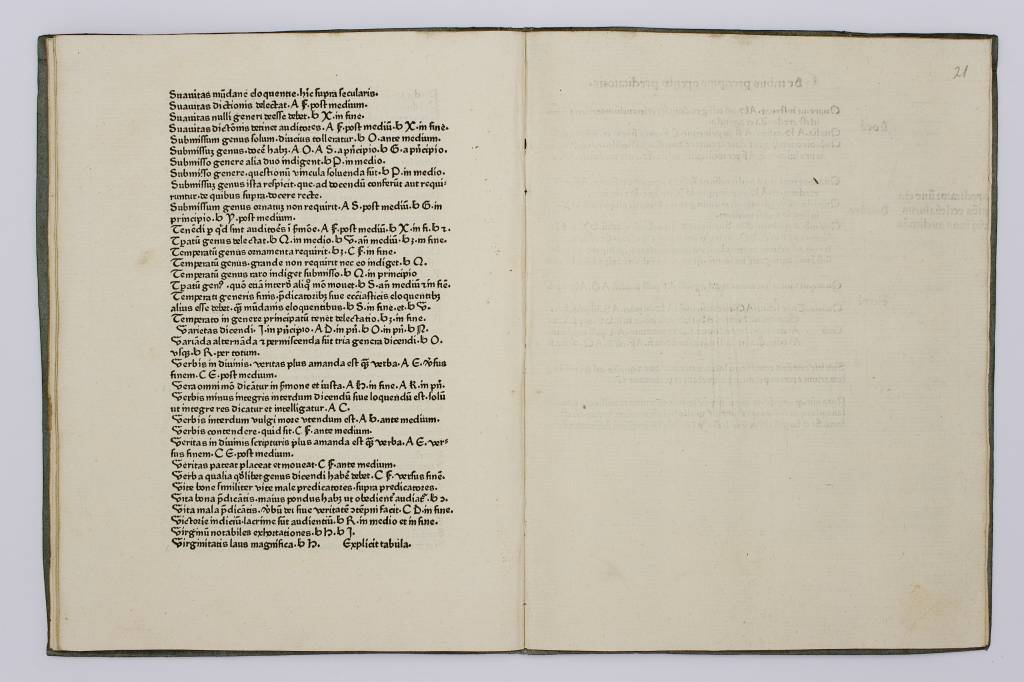 Suauitas mūdane eloquentie. hic supra secularis.
Suauitas dictionis delectat. A F. post medium.
Suauitas nulli generi deesse debet. b X. in fine.
Suauitas dictionis detinet auditores. A F. post mediū. b X. in fine.
Submissum genus solum. diucius tolleratur. b O. ante medium.
Submissuʒ genus. docē habʒ. A O. A S. a pñcipio. b G. a pñcipio.
Submisso genere alia duo indigent. b P. in medio.
Submisso genere. questionū vincula soluenda sūt. b P. in medio.
Submissuʒ genus ista respicit. que. ad docendū conferūt aut requi-
runtur. de quibus supra. docere recte.
Submissum genus ornatuʒ non requirit. A S. post mediū. b G. in
principio. b Y. post medium.
Tenēdi p qd sint auditores ī sermōe. A F. post mediū. b X. in fi. b ꝛ.
Tꝑatū genus delectat. b Q. in medio. b V. añ mediū. b ʒ. in fine.
Temperatū genus ornamenta requirit. b ʒ. C F. in fine.
Temperatū genus. grande non requirit nec eo indiget. b Q.
Temperatū genus raro indiget submisso. b Q. in principio
Tꝑatū genꝰ. quō etiā interdū aliqʒ mō mouet. b S. añ mediū ⁊ in fiē.
Temperati generis finis. p̄dicatoribʒ siue ecclīasticis eloquentibʒ
alius esse debet. qʒ mūdanis eloquentibus. b S. in fine. et. b V.
Temperato in genere principatū tenet delectatio. b ʒ. in fine.
Varietas dicendi. I. in pñcipio. A D. in pñ. b O. in pñ. b N.
Variāda alternāda ⁊ permiscenda sūt tria genera dicendi. b O.
vsqʒ. b R. per totum.
Verbis in diuinis. veritas plus amanda est qʒ verba. A E. v̄sus
finem. C E. post medium.
Vera omni mō dicātur in sermone et iusta. A H. in fine. A R. in pñ.
Verbis minus integris interdum dicendū siue loquendū est. solū
ut integre res dicatur et intelligatur. A C.
Verbis interdum vulgi more vtendum est. A b. ante medium.
Verbis contendere. quid sit. C F. ante medium.
Veritas in diuinis scripturis plus amanda est qʒ verba. A E. ver-
sus finem. C E. post medium.
Veritas pateat placeat et moueat. C F. ante medium.
Verba qualia qdlibet genus dicendi habē debet. C F. versus finē.
Vite bone similiter vite male predicatores. supra predicatores.
Vita bona p̄dicātis. maius pondus habʒ ut obedienť audiať. b ɔ.
Vita mala p̄dicātis. v̄bū dei siue veritatē ɔtēpni facit. C D. in fine.
Victorie indiciū. lacrime sūt audientiū. b R. in medio et in fine.
Virginū notabiles exhortationes. b H. b I.
Virginitatis laus magnifica. b H. Explicit tabula.
21